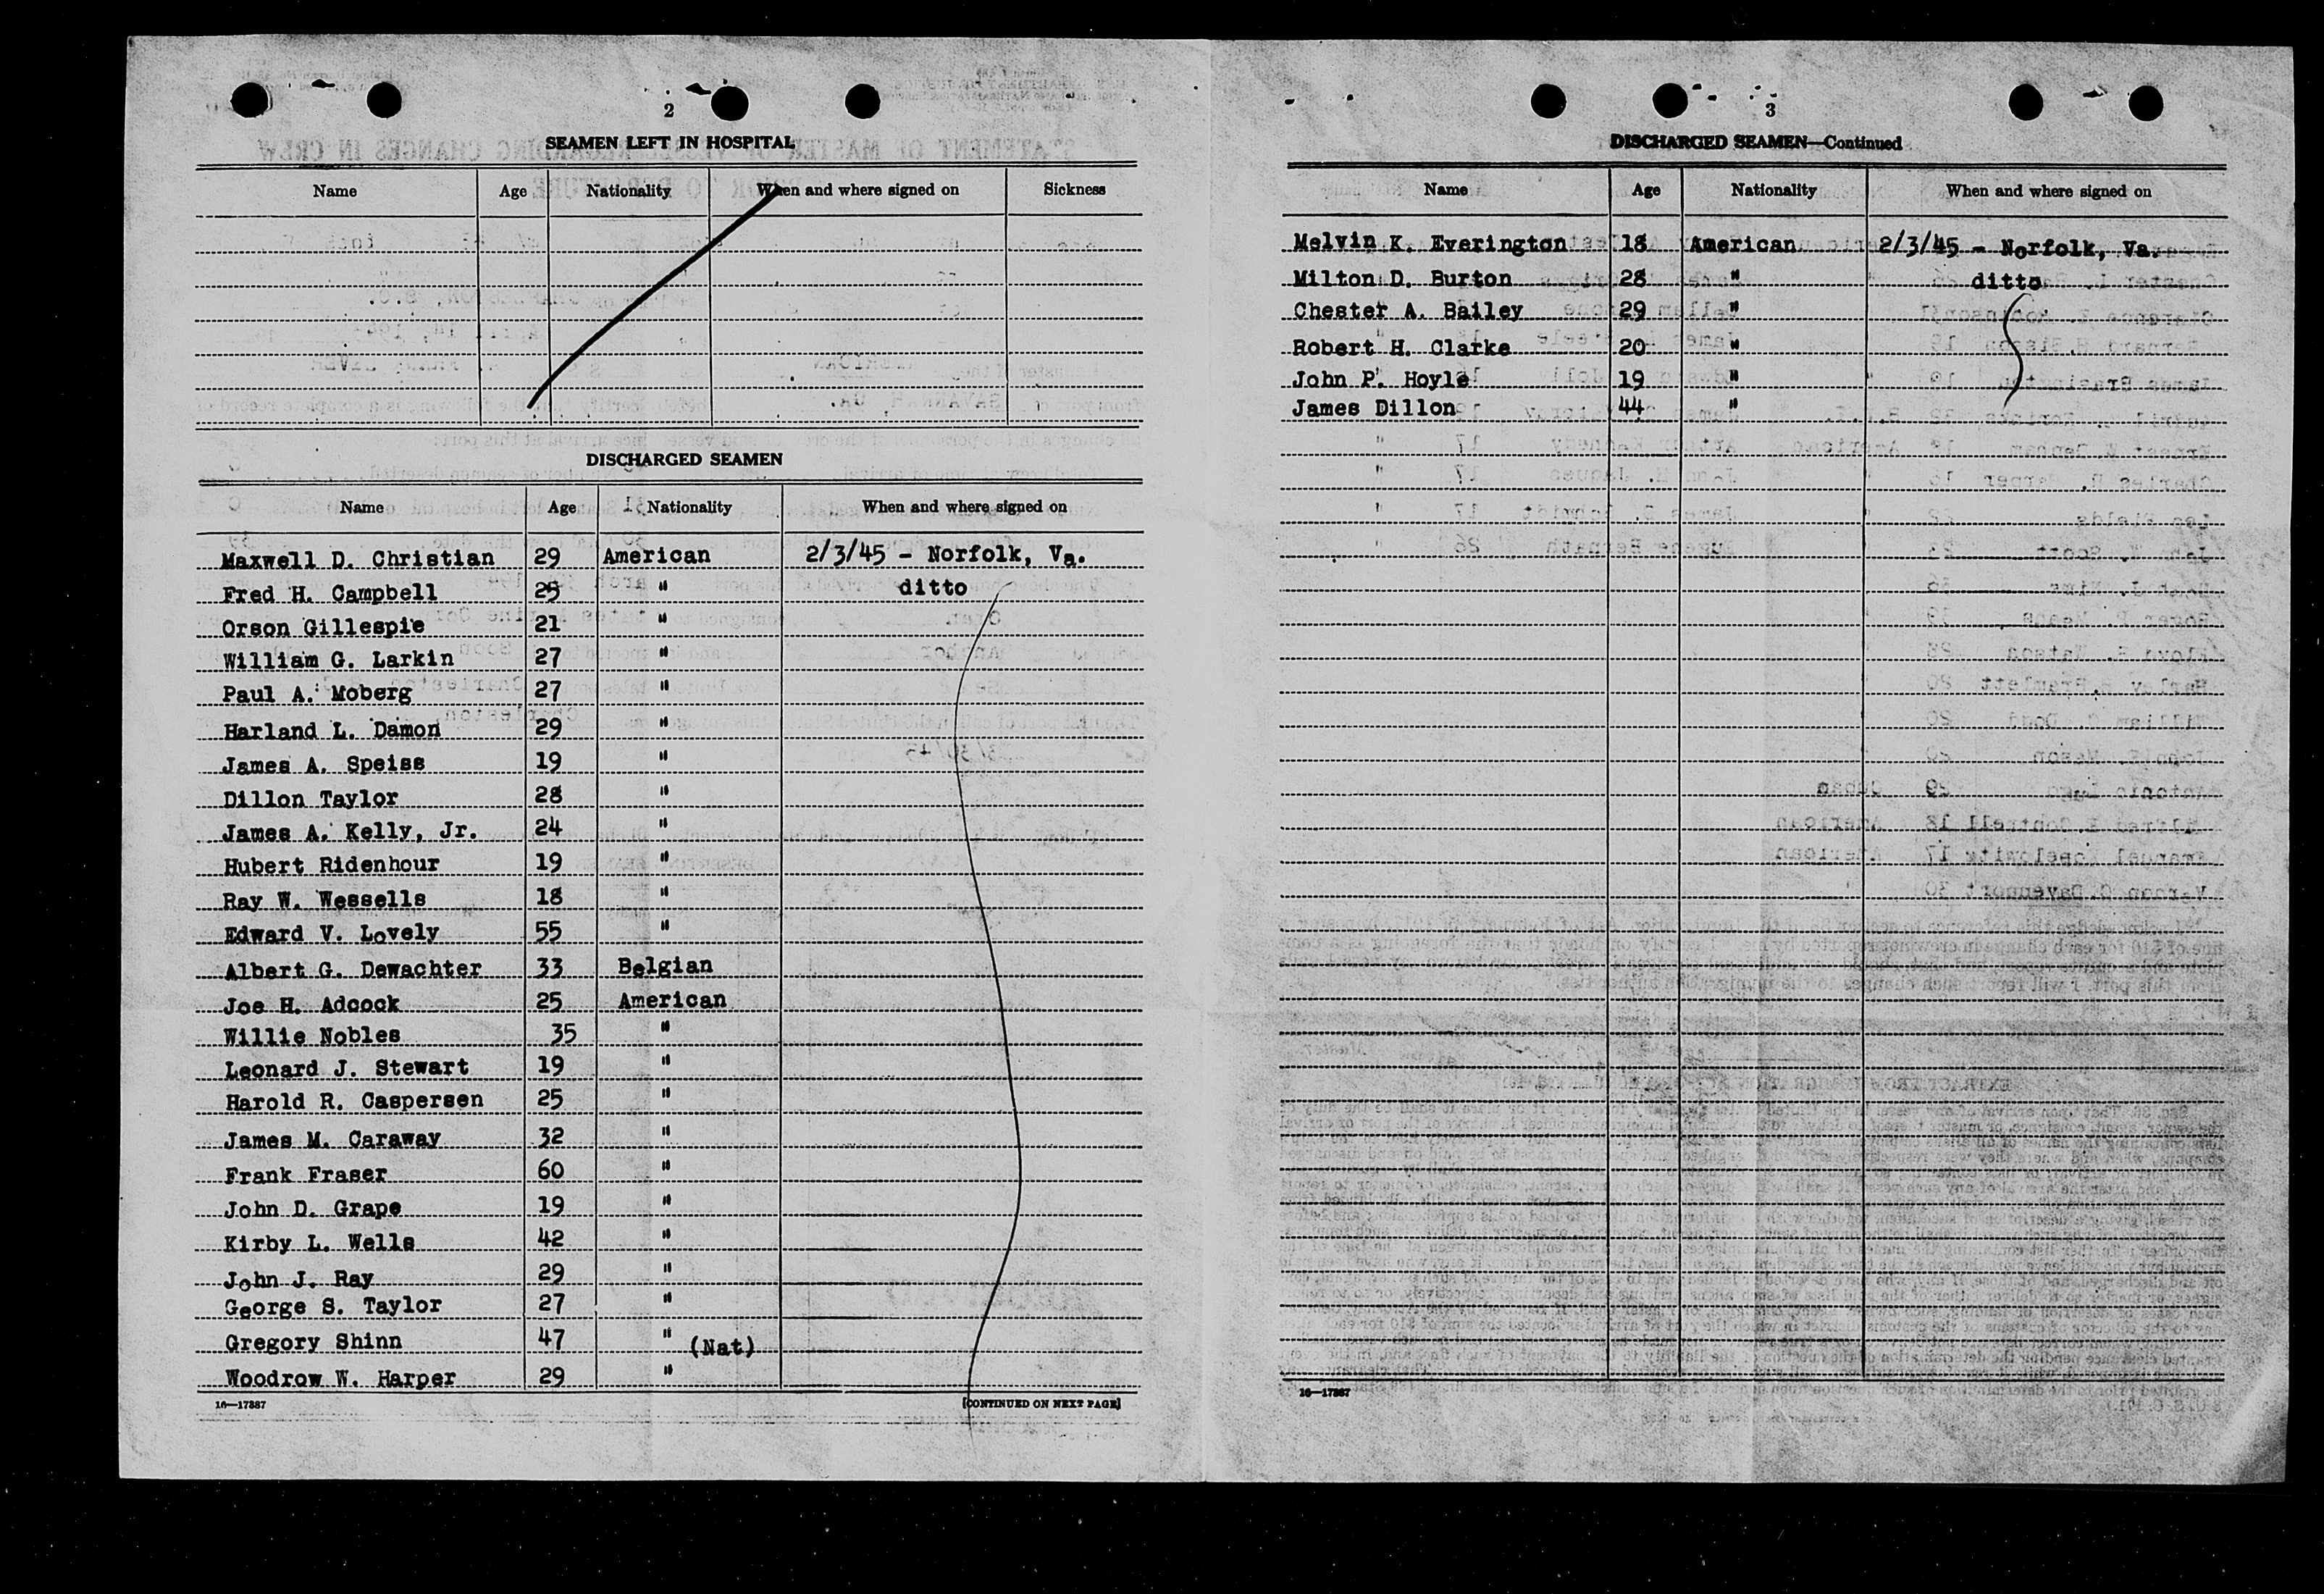 2
SEAMEN LEFT IN HOSPITAL
Name Age Nationality When and where signed on Sickness
DISCHARGED SEAMEN
Name Age Nationality When and where signed on
Maxwell D. Christian 29 American 2/3/45 - Norfolk, Va.
Fred H. Campbell 25 " ditto
Orson Gillespie 21 "
William G. Larkin 27 "
Paul A. Moberg 27 "
Harland L. Damon 29 "
James A. Speiss 19 "
Dillon Taylor 28 "
James A. Kelly, Jr. 24 "
Hubert Ridenhour 19 "
Ray W. Wessells 18 "
Edward V. Lovely 55 "
Albert G. Dewachter 33 Belgian
Joe H. Adcock 25 American
Willie Nobles 35 "
Leonard J. Stewart 19 "
Harold R. Caspersen 25 "
James M. Caraway 32 "
Frank Fraser 60 "
John D. Grape 19 "
Kirby L. Wells 42 "
John J. Ray 29 "
George S. Taylor 27 "
Gregory Shinn 47 " (Nat)
Woodrow W. Harper 29 "
16—17387
[CONTINUED ON NEXT PAGE]
3
DISCHARGED SEAMEN—Continued
Name Age Nationality When and where signed on
Melvin K. Everington 18 American 2/3/45 - Norfolk, Va.
Milton D. Burton 28 " ditto
Chester A. Bailey 29 "
Robert H. Clarke 20 "
John P. Hoyle 19 "
James Dillon 44 "
16—17387